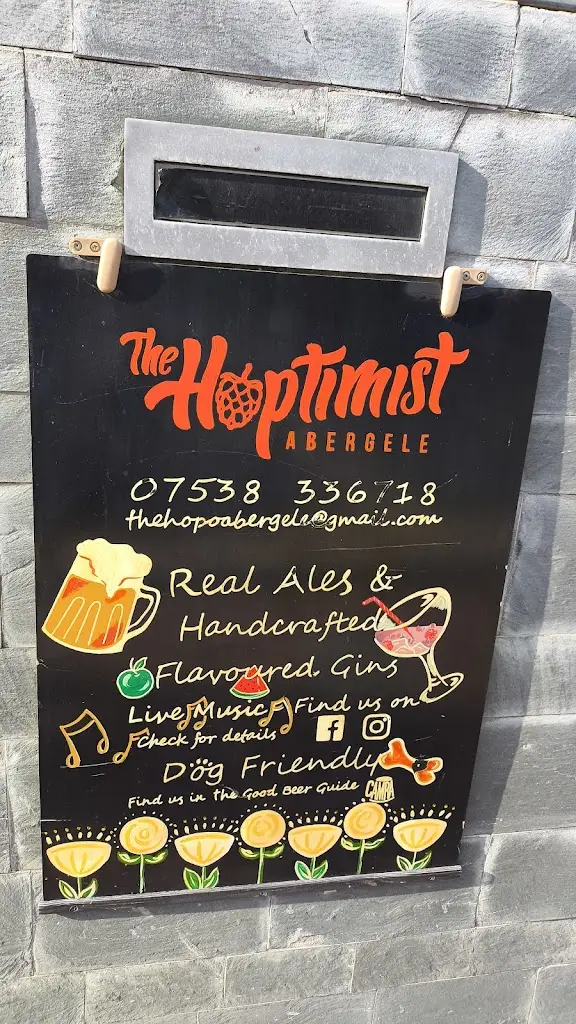 The Hoptimist
ABERGELE
07538 336718
thehopoabergele@gmail.com
Real Ales &
Handcrafted
Flavoured Gins
Live Music Find us on
Check for details
Dog Friendly
Find us in the Good Beer Guide CAMRA